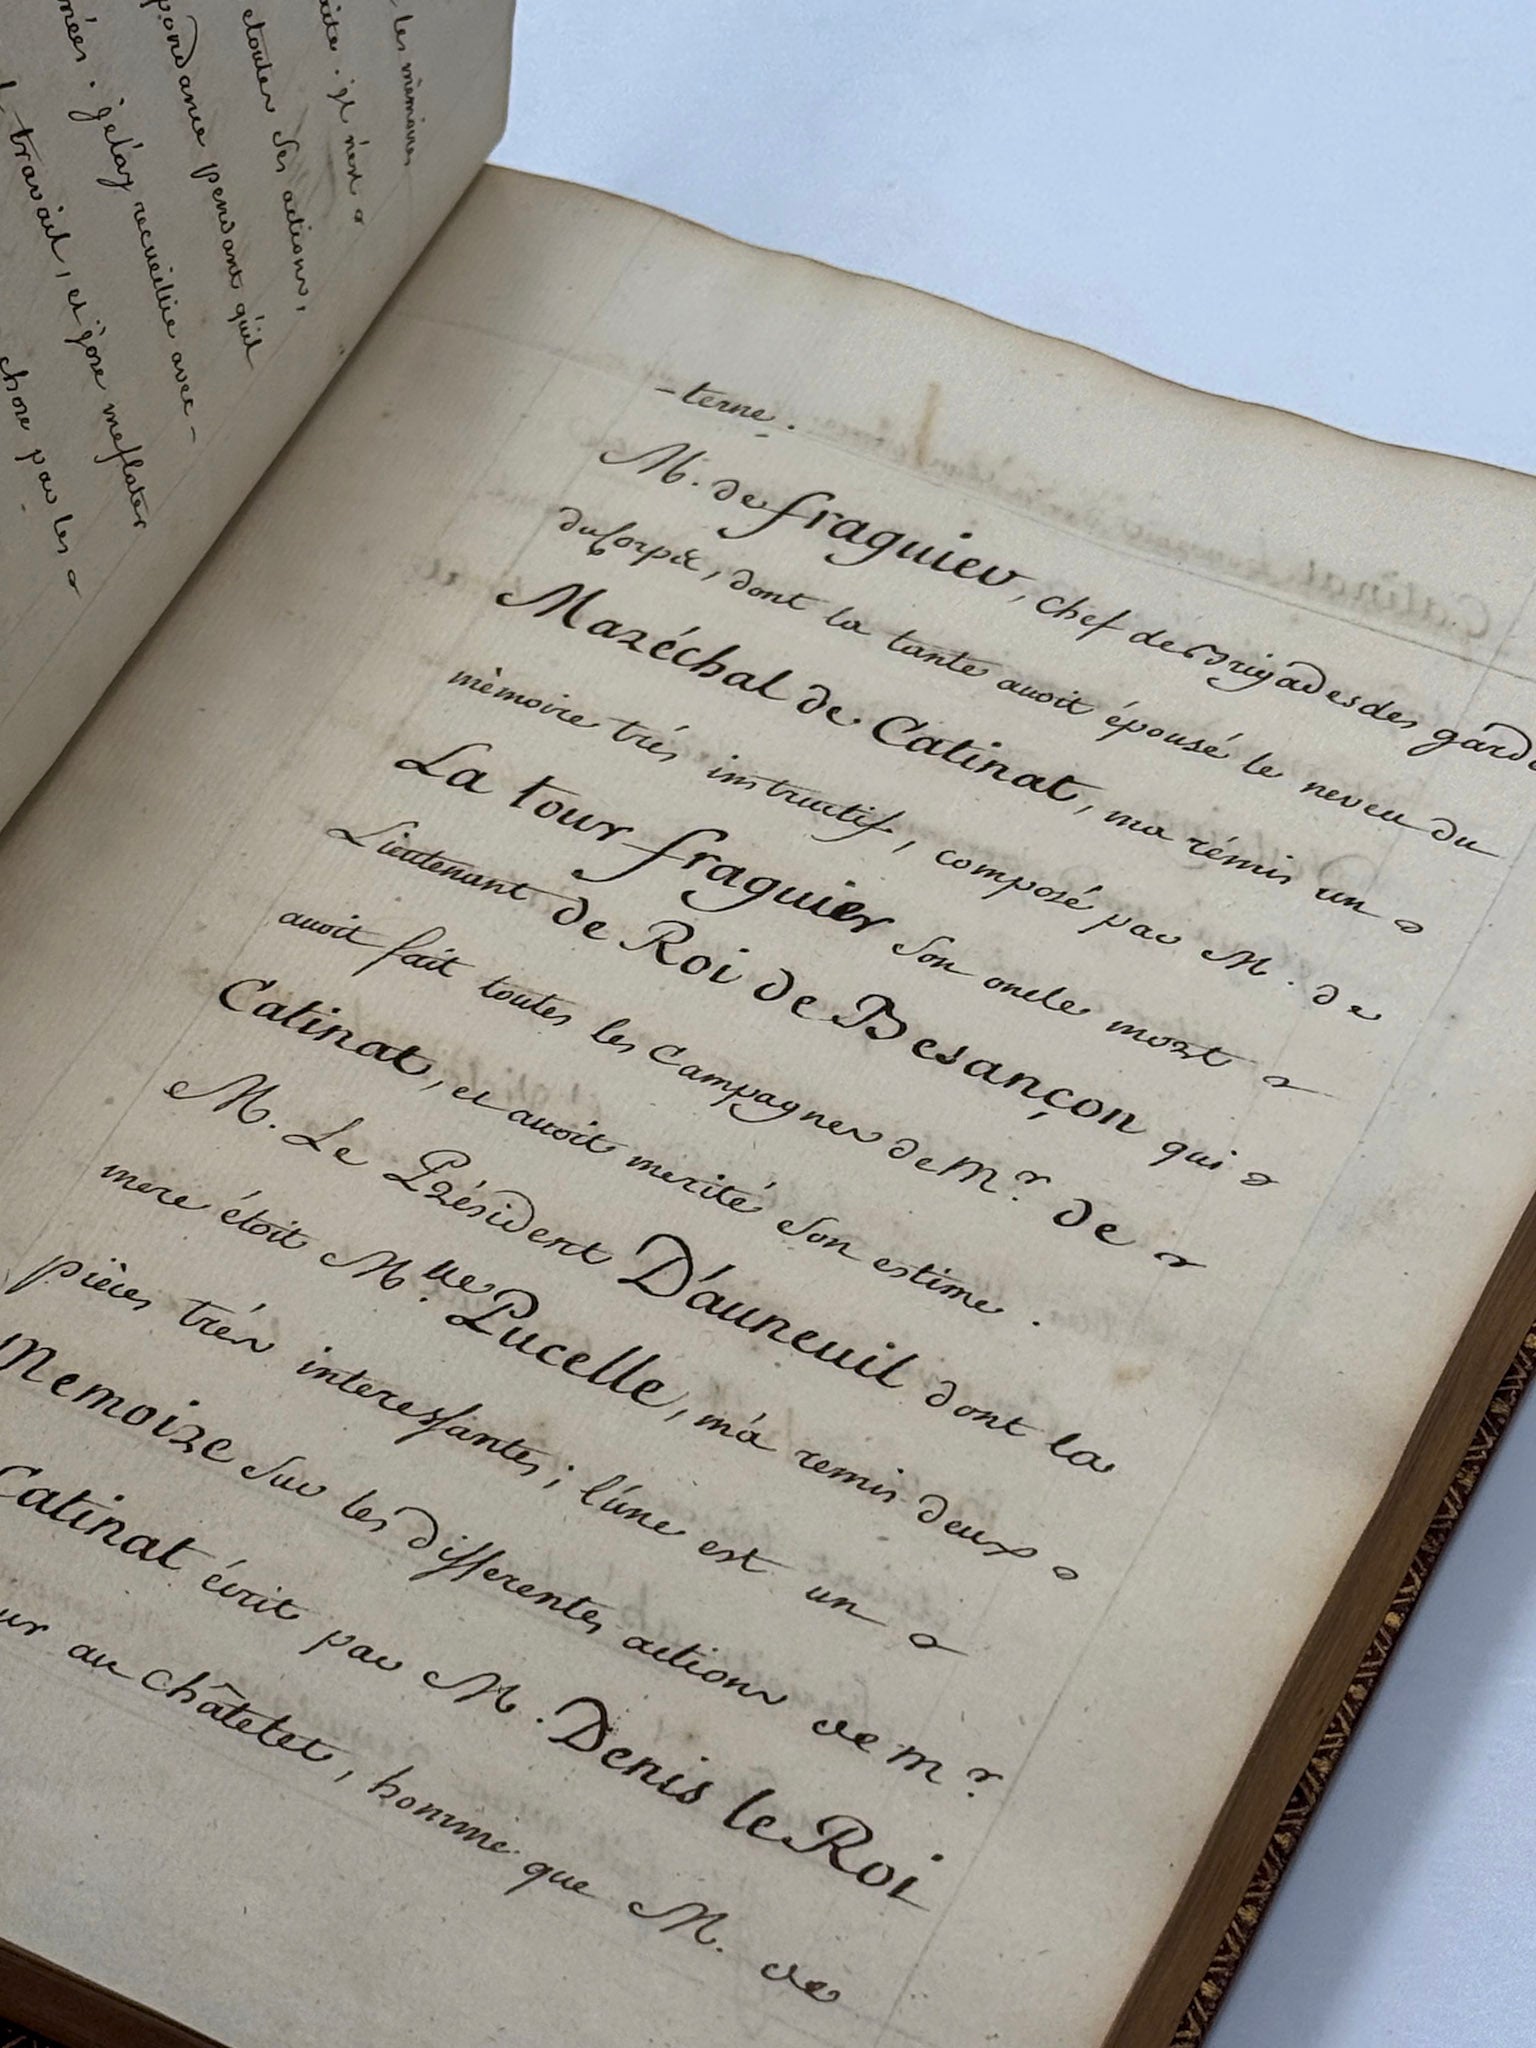 les mémoires
il n'est
toutes ses actions,
pondance pendant qu'il
nées. je l'ay recueillie avec -
travail, et j'ose me flater
chose par les
-terne.
M. de fraguier, chef de Brigades des gard
du Corps &c, dont la tante avoit épousé le neveu du
Maréchal de Catinat, ma rémis un
mémoire trés instructif, composé par M. de
La tour fraguier son oncle mort
Lieutenant de Roi de Besançon qui
avoit fait toutes les Campagnes de Mr. de
Catinat, et avoit merité son estime.
M. Le Président D'auneuil dont la
mere étoit M.lle Pucelle, m'a remis deux
piéces trés interessantes; l'une est un
Memoire sur les differentes actions de Mr.
Catinat écrit par M. Denis le Roi
ur au châtelet, homme que M. de